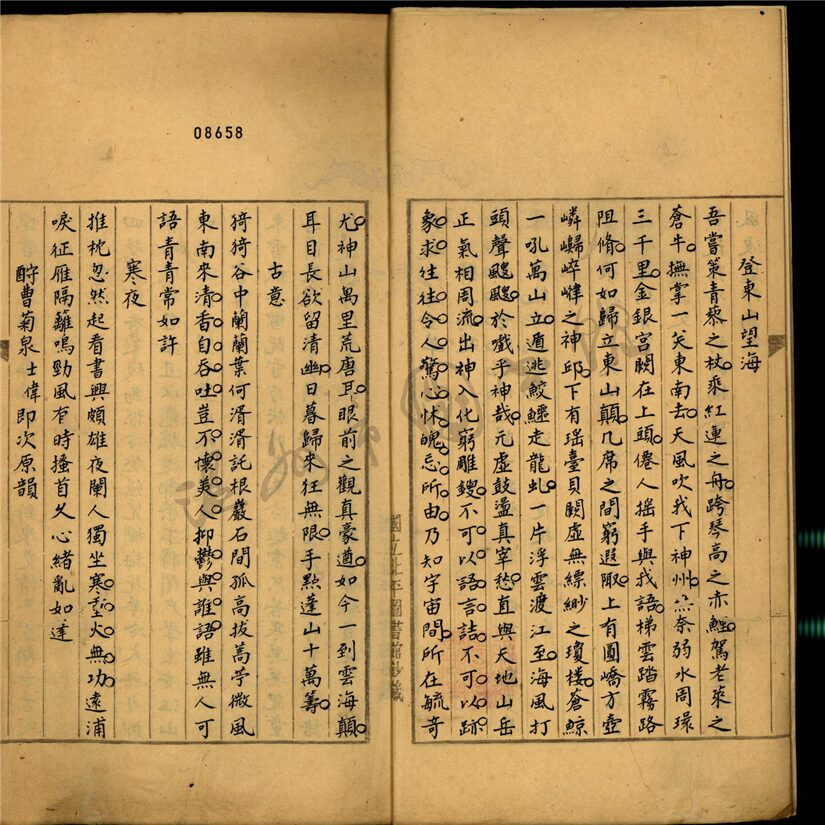 登東山望海
吾嘗策青藜之杖乘紅蓮之舟跨琴高之赤鯉駕老萊之
蒼牛撫掌一笑東南去天風吹我下神州無奈弱水周環
三千里金銀宮闕在上頭僊人摇手與我語梯雲踏霧路
阻脩何如歸立東山顛几席之間窮遐陬上有圓嶠方壺
嶙巋崒嵂之神邱下有瑶臺貝闕虛無縹緲之瓊樓蒼鯨
一吼萬山立遁逃鮫鱷走龍虬一片浮雲渡江至海風打
頭聲颼颼於戲乎神哉元虛鼓盪真宰愁直與天地山岳
正氣相周流出神入化窮雕鎪不可以語言詰不可以跡
象求往往令人驚心怵魄忘所由乃知宇宙間所在毓奇
尤神山萬里荒唐耳眼前之觀真豪遒如今一到雲海顛
耳目長欲留清幽日暮歸來狂無限手點蓬山十萬籌
古意
猗猗谷中蘭蘭葉何湑湑託根巖石間孤高拔蒿苧微風
東南來清香自吞吐豈不懷美人抑鬱與誰語雖無人可
語青青常如許
寒夜
推枕忽然起看書興頗雄夜闌人獨坐寒重火無功遠浦
唳征雁隔籬鳴勁風有時搔首久心緒亂如逢
酹曹菊泉士偉即次原韻
08658
國立北平圖書館鈔藏